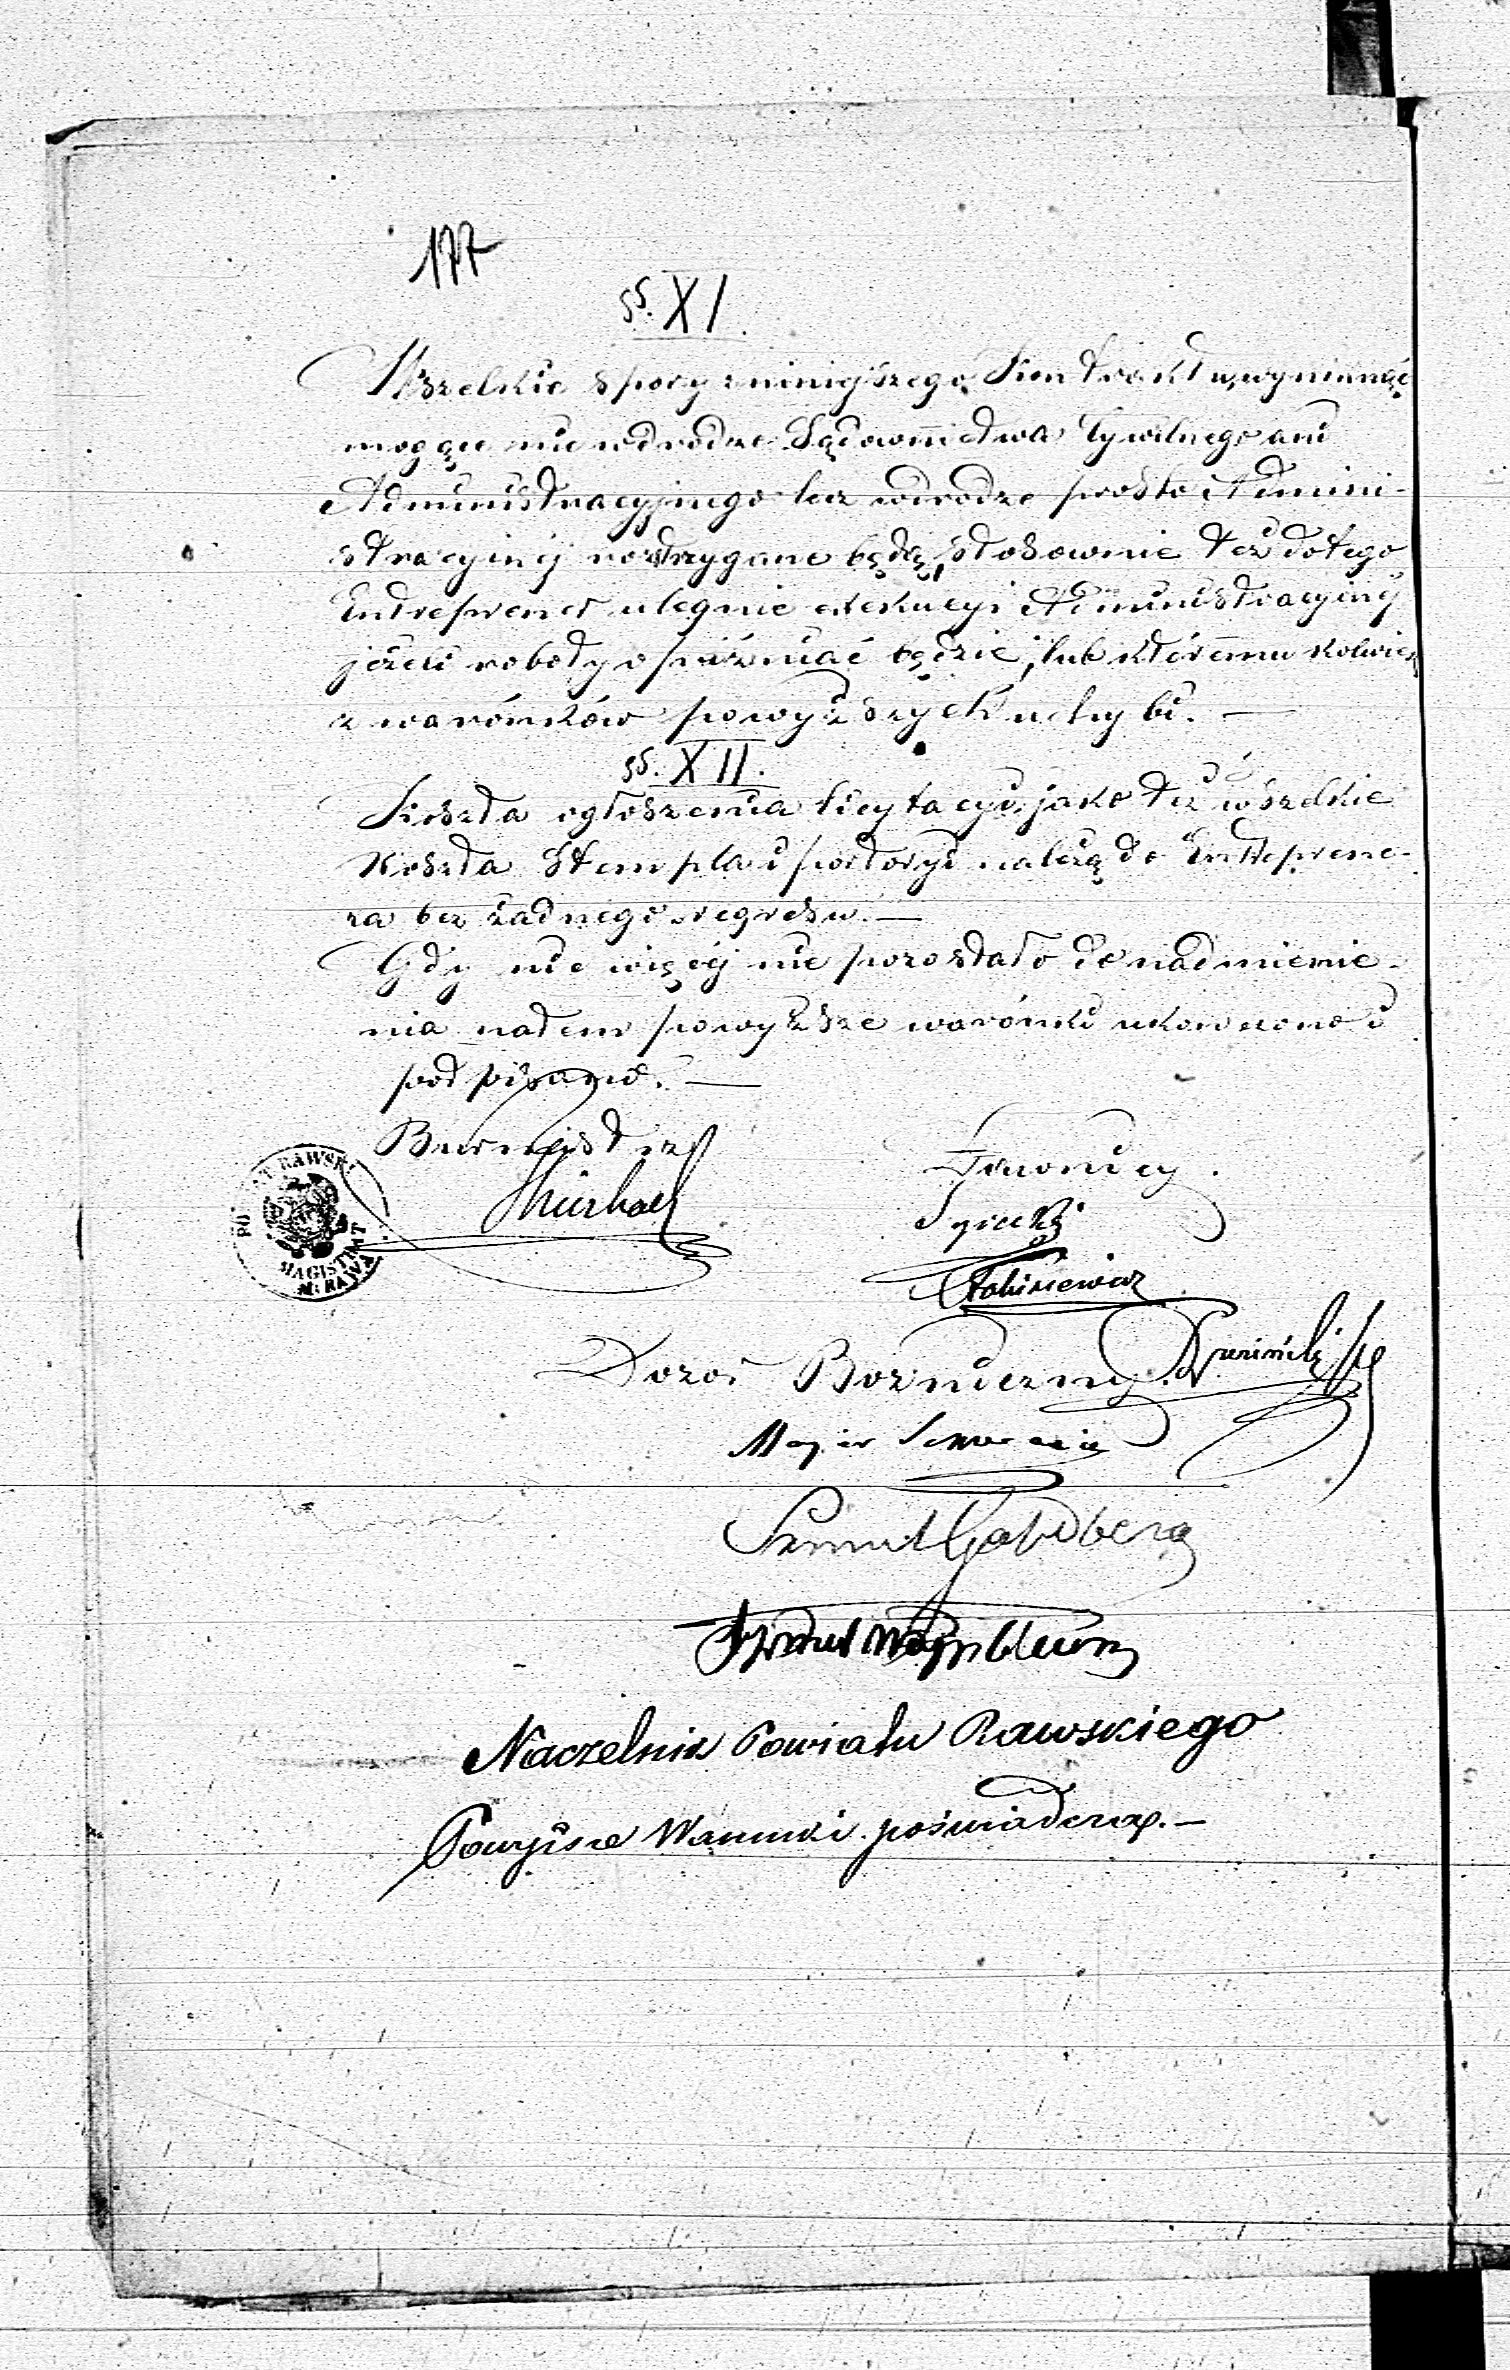 177
§§. XI.
Wszelkie spory z niniejszego Kontraktu, wyniknąć
mogące nie w drodze Sądownictwa Cywilnego ani
Administracyjnego lecz w drodze prosto Admini-
stracyjnéj rozstrzygane będą, stosownie téż do tego
Entreprener ulegnie exekucyi Administracyjnéj
jeżeli roboty opóźniać będzie, lub któremu kolwiek
z warónków powyższych uchybi. —
§§. XII.
Koszta ogłoszenia licytacyi, jako też wszelkie
Koszta Stempla i portoryi należą do Entreprene-
ra bez żadnego regresu. —
Gdy nic więcéj nie pozostało do nadmienie-
nia, na tem powyższe warónki ukończono i
podpisano. —
Burmistrz
Ławnicy.
POWIAT RAWSKI
MAGISTRAT
M. RAWA
Dozór Bozniczny.
Majer
Szmul Goldberg
Szmul
Naczelnik Powiatu Rawskiego
Powyższe Warunki poświadcza. —